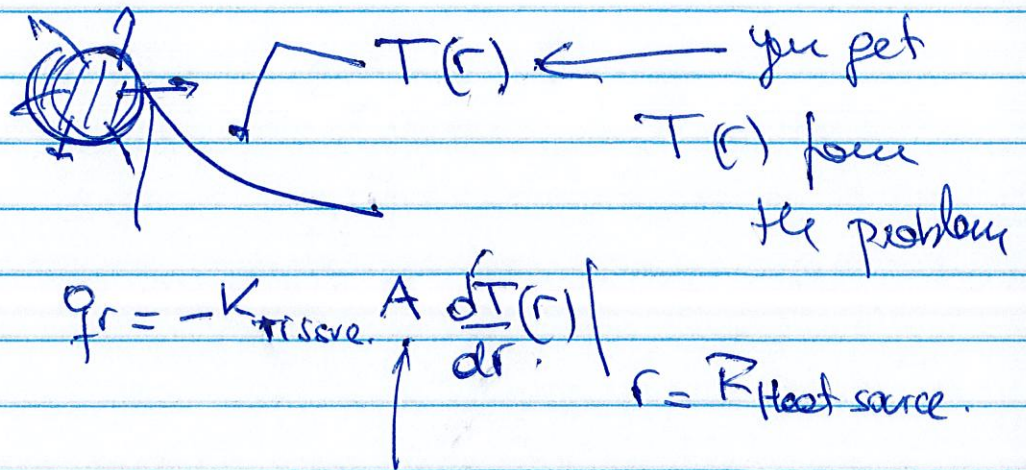 T(r) ← you get
T(r) from
the problem
qr = -K Tissue. A dT(r)/dr. | r = R Heat source.